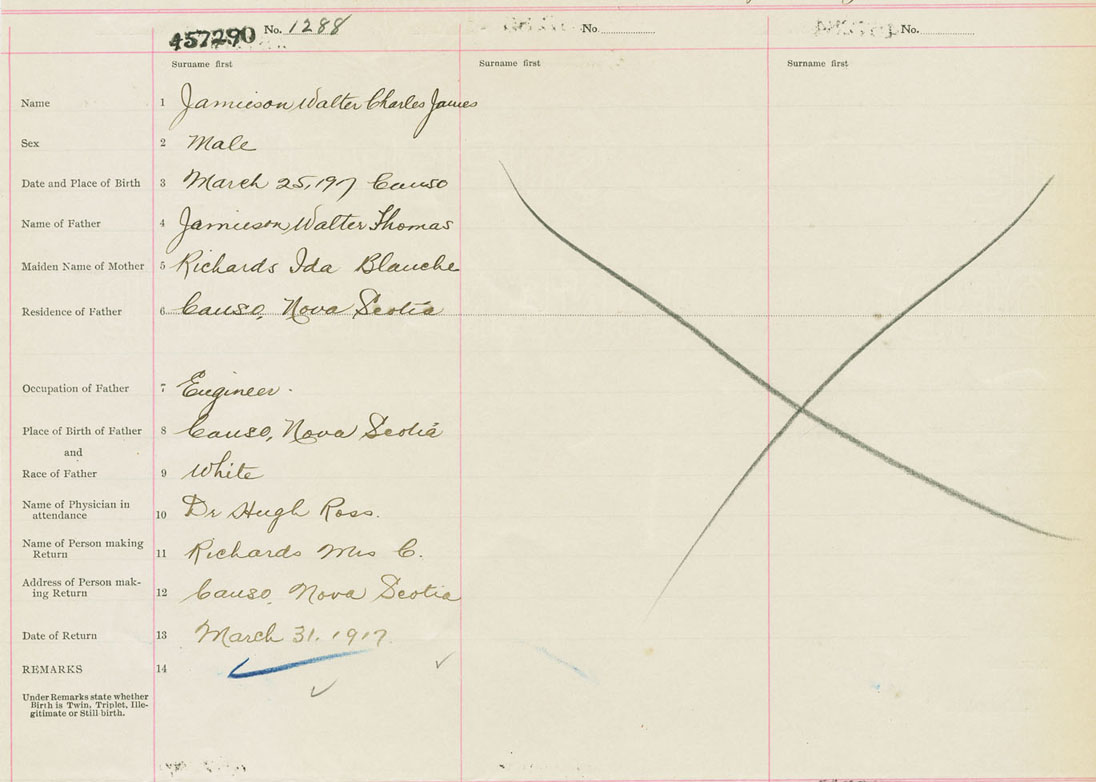 457290 No. 1288 No. No.
Surname first Surname first Surname first
Name 1 Jamieson Walter Charles James
Sex 2 Male
Date and Place of Birth 3 March 25, 197 Canso
Name of Father 4 Jamieson Walter Thomas
Maiden Name of Mother 5 Richards Ida Blanche
Residence of Father 6 Canso, Nova Scotia
Occupation of Father 7 Engineer.
Place of Birth of Father 8 Canso, Nova Scotia
and
Race of Father 9 White
Name of Physician in
attendance 10 Dr Hugh Ross.
Name of Person making
Return 11 Richards Mrs C.
Address of Person mak-
ing Return 12 Canso, Nova Scotia
Date of Return 13 March 31. 1917.
REMARKS 14
Under Remarks state whether
Birth is Twin, Triplet, Ille-
gitimate or Still birth.